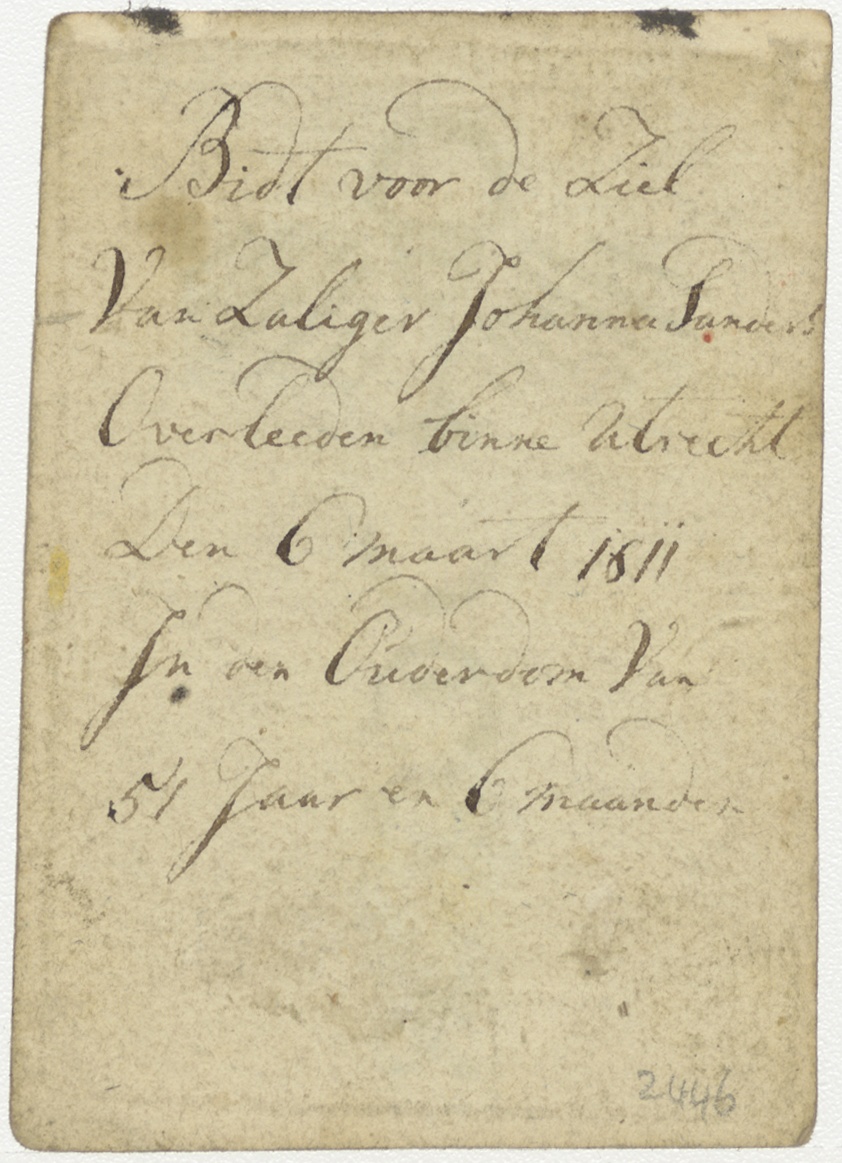 Bidt voor de Ziel
Van Zaliger Johanna Sanders
Overleeden binne Utrecht
Den 6 maart 1811
In den Ouderdom Van
51 Jaar en 6 maanden
2446